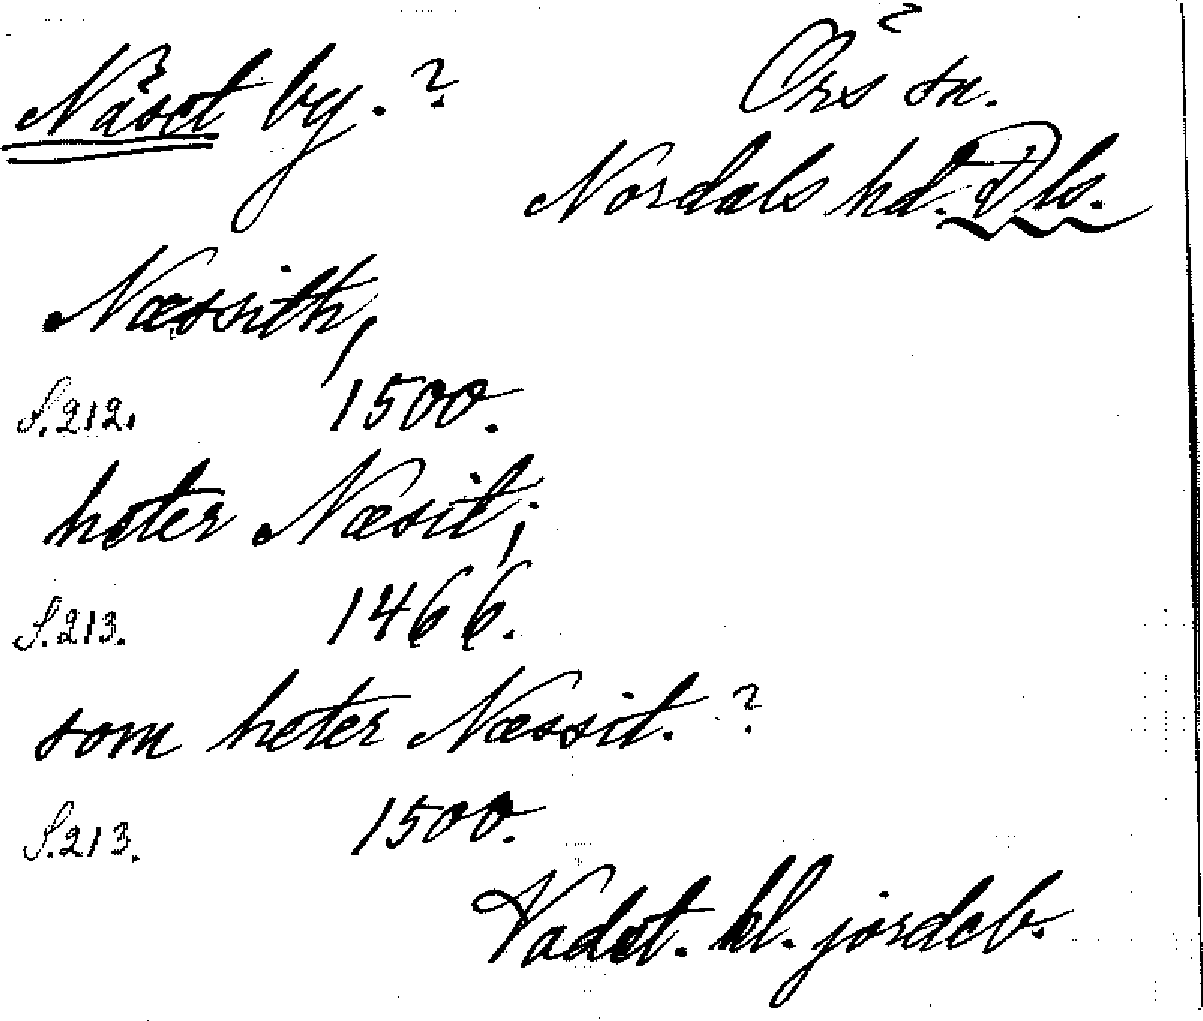 Näset by. ?
Örs sn. ?
Nordals hd. Dls.
Næssith,
S. 212. 1500.
heter Næsit;
S. 213. 1466.
som heter Næssit. ?
S. 213. 1500.
Vadst. kl. jordeb.